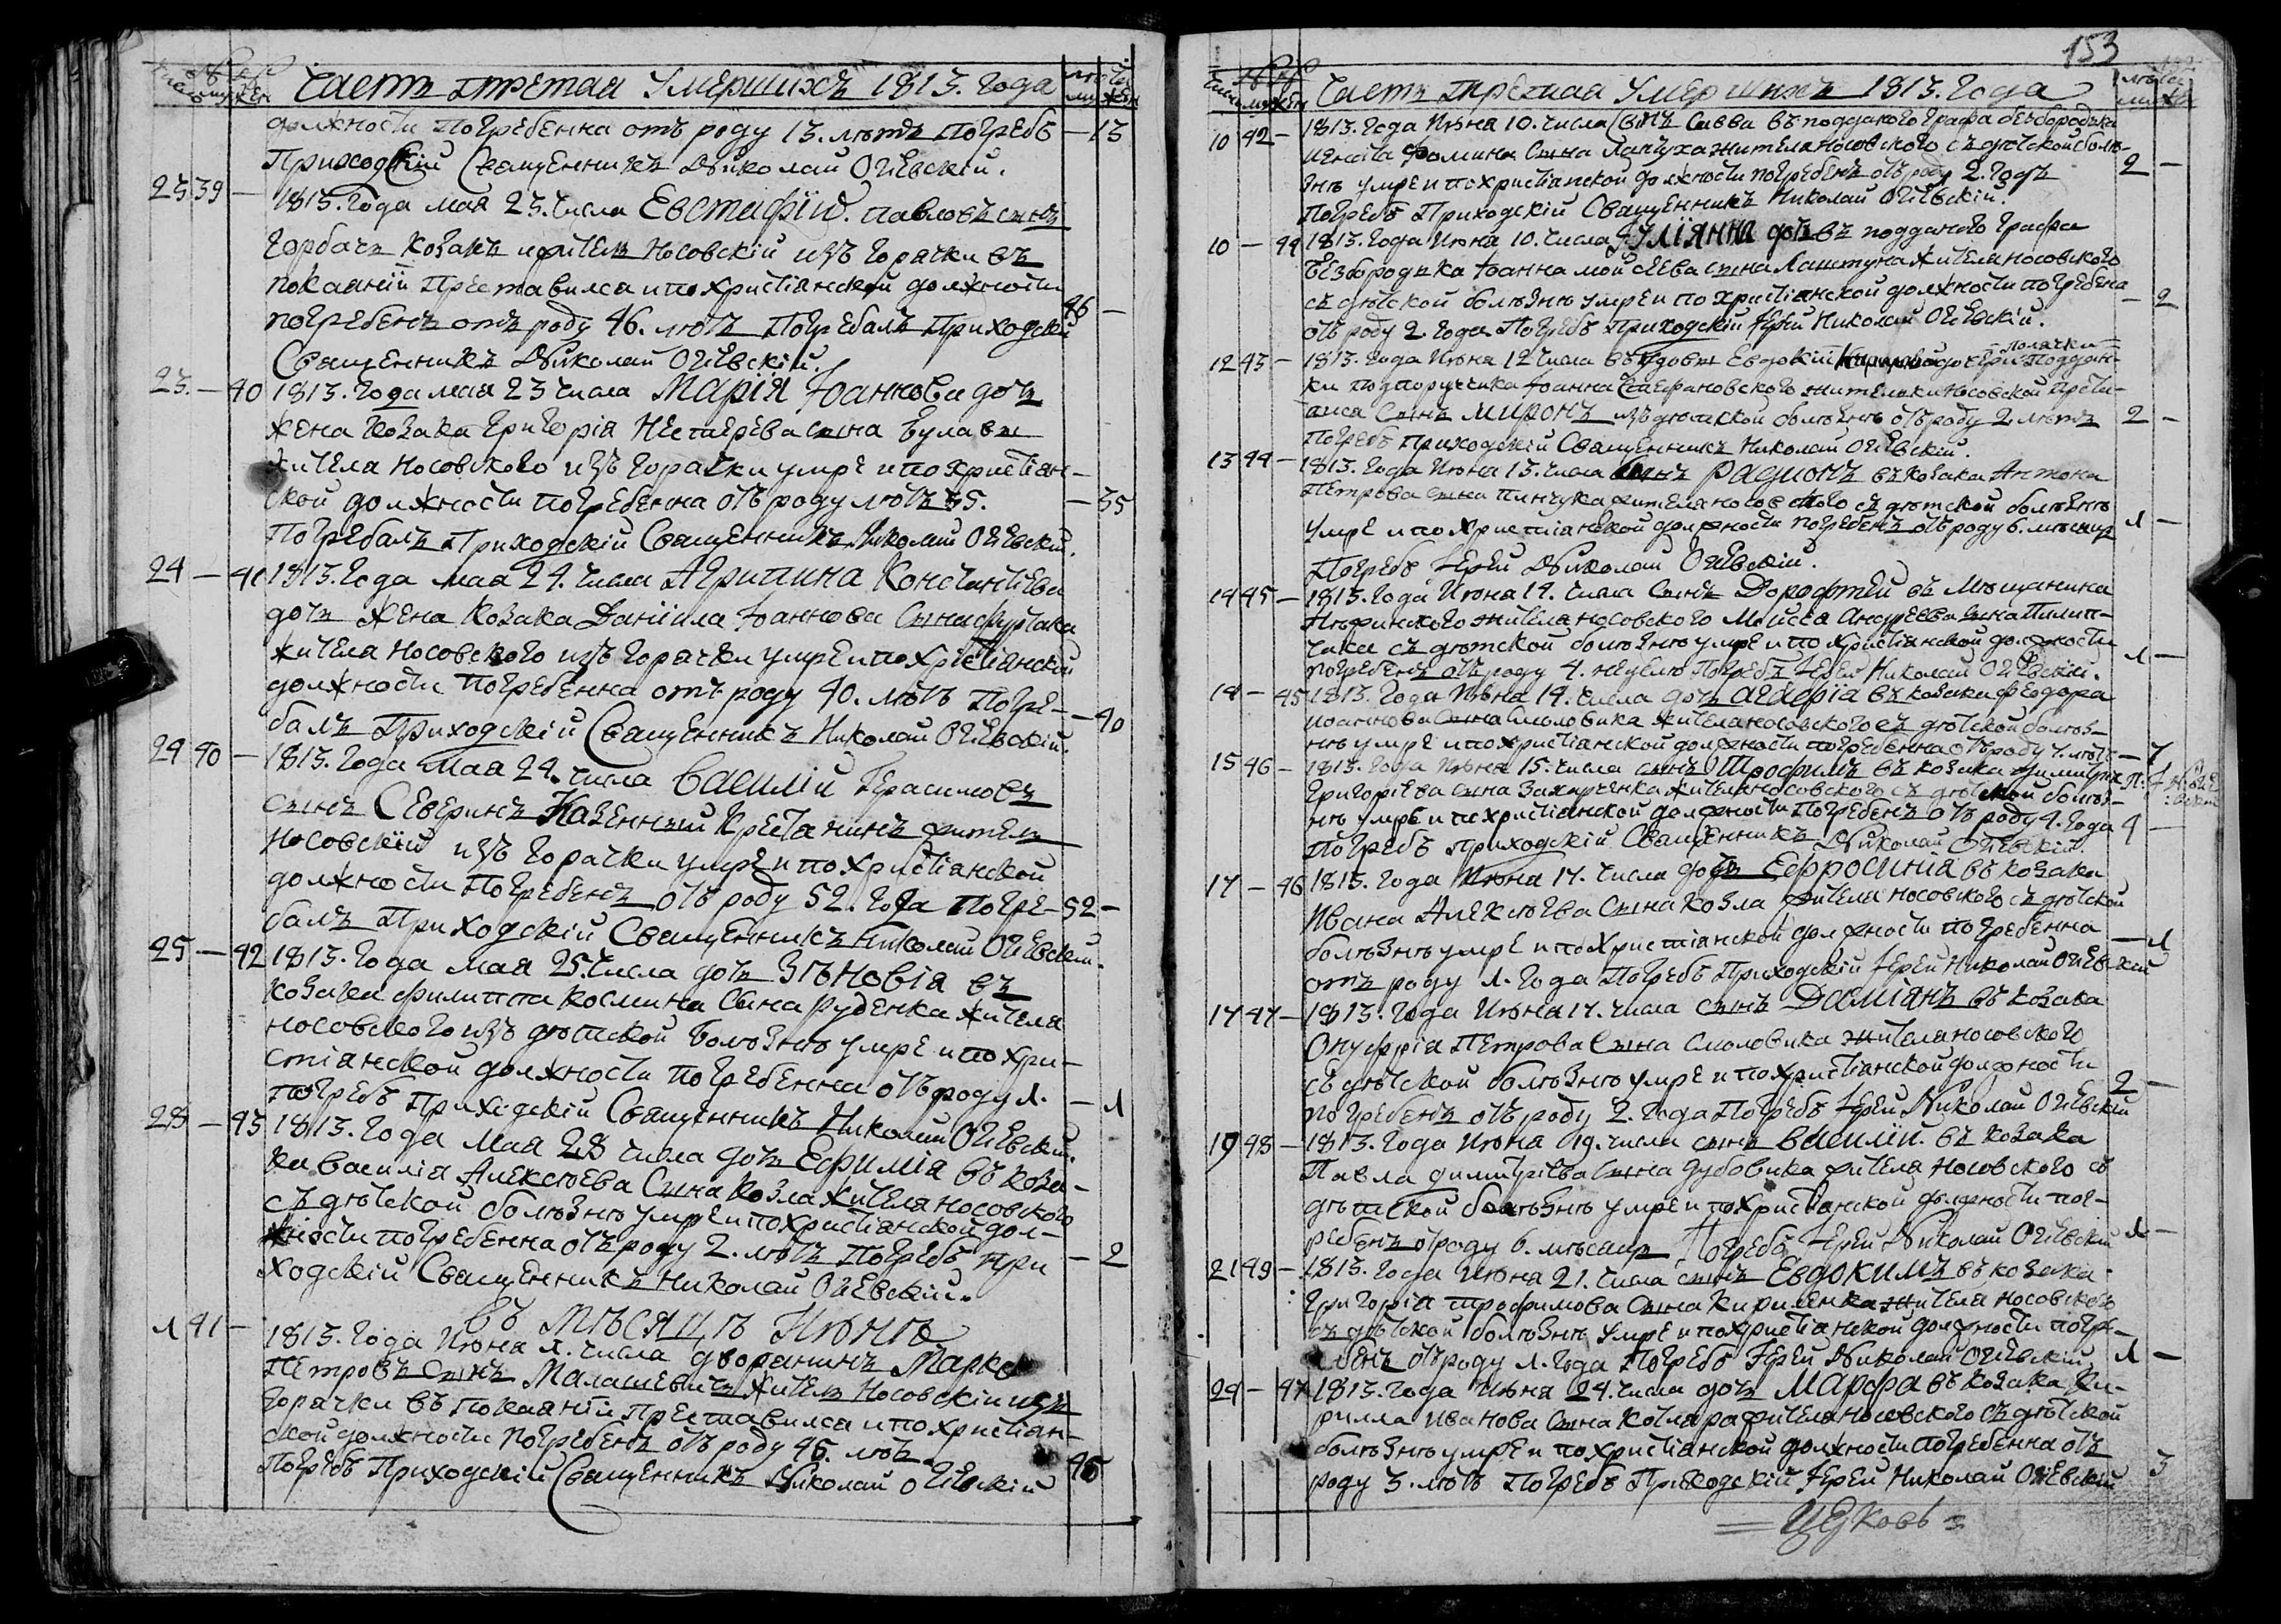 Часть третая Умершихъ 1813. Года
должности погребенна отъ роду 13. лѣтъ погребъ — 13
Приходскій Священникъ Николай Огіевскій.
23 39 — 1813. Года мая 23. числа Евстафій. павловъ сынъ
Горбачъ козакъ ижитель Носовскій изъ горячки въ
покаяніи Преставился и по христіанской должности
погребенъ отъ роду 46. лѣтъ Погребалъ Приходскій 46 —
Священникъ Николай Огіевскій.
23. — 40 1813. Года мая 23 числа Марія Іоаннова дочь
жена козака Григорія Нестерева сына Булавы
жителя Носовского изъ горячки умре и по христіан-
ской должности погребенна отъ роду лѣтъ 35. — 35
Погребалъ Приходскій Священникъ Николай Огіевскій.
24 — 41 1813. Года мая 24. числа Агрипина Константіева
дочь жена козака Даніила Іоаннова сына
жителя Носовского изъ горячки умре и по христіанской
должности погребенна отъ роду 40. лѣтъ Погре-
балъ Приходскій Священникъ Николай Огіевскій. — 40
24 40 — 1813. Года мая 24. числа Василій Герасимовъ
сынъ Северинъ Казенный крестянинъ житель
Носовскій изъ горячки умре и по христіанской
должности погребенъ отъ роду 52. года Погре- 52 —
балъ Приходскій Священникъ Николай Огіевскій.
25 — 42 1813. Года мая 25. числа дочь Зѣновія въ
козака филиппа космина сына Руденка жителя
носовского изъ дѣтской болѣзнѣ умре и по хри-
стіанской должности погребенна отъ роду 1.
погребъ Приходскій Священникъ Николай Огіевскій. — 1
28 — 43 1813. Года мая 28 числа дочь Ефимія въ коза-
ка василія Алексѣева сына козла жителя носовского
съ дѣтской болѣзнѣ умре и по христіанской дол-
жности погребенна отъ роду 2. лѣтъ Погребъ при — 2
ходскій Священникъ Николай Огіевскій.
въ мѣсяцѣ Июнѣ
1 41 — 1813. Года Июня 1. числа дворянинъ Марко
Петровъ сынъ Малашевичъ житель Носовскій изъ
горячки въ покаяніи преставился и по христіан-
ской должности погребенъ отъ роду 46. лѣтъ
Погребъ Приходскій Священникъ Николай Огіевскій 46
153
Часть третая Умершихъ 1813. Года
10 42 — 1813. Года Июня 10. числа сынъ Савва въ подданого графа безбородька
фомина сына Лапуха жителя носовского съ дѣтской болѣ-
знѣ умре и по христіанской должности погребенъ отъ роду 2. годъ 2 —
Погребъ Приходскій Священникъ Николай Огіевскій.
10 — 44 1813. Года Июня 10. числа Іуліянна дочь въ подданого графа
Безбородька Іоанна мойсеева сына Лаштуна жителя носовского
съ дѣтской болѣзнѣ умре и по христіанской должности погребена — 2
отъ роду 2. года Погребъ Приходскій Іерей Николай Огіевскій.
12 43 — 1813. Года Июня 12 числа въ вдовы Евдокіи поддан-
ки подпоручика Іоанна Стаефановского жителки Носовской преста-
вися сынъ миронъ изъ дѣтской болѣзнѣ отъ роду 2. лѣтъ 2 —
Погребъ приходскій Священникъ Николай Огіевскій.
13 44 — 1813. Года Июня 13. числа сынъ Радионъ въ козака Антона
Петрова сына пинчука жителя носовского съ дѣтской болѣзнѣ
умре и по христіанской должности погребенъ отъ роду 6. мѣсяцъ 1 —
Погребъ Іерей Николай Огіевскій.
14 45 — 1813. Года Июня 14. числа сынъ Дорофтей въ мѣщанина
Нѣжинского жителя носовского Мойсея Андреева сына Пилип-
чика съ дѣтской болѣзнѣ умре и по христіанской должности
погребенъ отъ роду 4. недѣлю Погребъ Іерей Николай Огіевскій. 1 —
14 — 45 1813. Года Июня 14. числа дочь Агафія въ козака Феодора
иоаннова сына Смоловика жителя носовского съ дѣтской болѣз-
нѣ умре и по христіанской должности погребенна отъ роду 7. лѣтъ — 7
15 46 — 1813. Года Июня 15. числа сынъ Трофимъ въ козака димитрія
Григоріева сына Захарченка жителя носовского съ дѣтской болѣз-
нѣ умре и по христіанской должности погребенъ отъ роду 4. года 4 —
Погребъ Приходскій Священникъ Николай Огіевскій.
17 — 46 1813. Года Июня 17. числа дочь Ефросинія въ козака
Ивана Алексѣева сына козла жителя носовского съ дѣтской
болѣзнѣ умре и по христіанской должности погребенна — 1
отъ роду 1. года Погребъ Приходскій Іерей Николай Огіевскій
17 47 — 1813. Года Июня 17. числа сынъ Даміянъ въ козака
Онуфрія Петрова сына смоловика жителя носовского
съ дѣтской болѣзнѣ умре и по христіанской должности 2 —
погребенъ отъ роду 2. года Погребъ Іерей Николай Огіевскій
19 48 — 1813. Года Июня 19. числа сынъ василій. въ козака
Павла димитріева сына дубовика жителя носовского съ
дѣтской болѣзнѣ умре и по христіанской должности пог-
ребенъ от роду 6. мѣсацъ Погребъ Іерей Николай Огіевскій 1 —
21 49 — 1813. Года Июня 21. числа сынъ Евдокимъ въ козака
Григорія трофимова сына кириленка жителя носовского
съ дѣтской болѣзнѣ умре и по христіанской должности погре-
бенъ отъ роду 1. года Погребъ Іерей Николай Огіевскій 1 —
24 — 47 1813. Года Июня 24. числа дочь Марфа въ козака Ки-
рилла иванова сына котляра жителя носовского съ дѣтской
болѣзнѣ умре и по христіанской должности погребенна отъ
роду 3. лѣтъ Погребъ Приходскій Іерей Николай Огіевскій 3